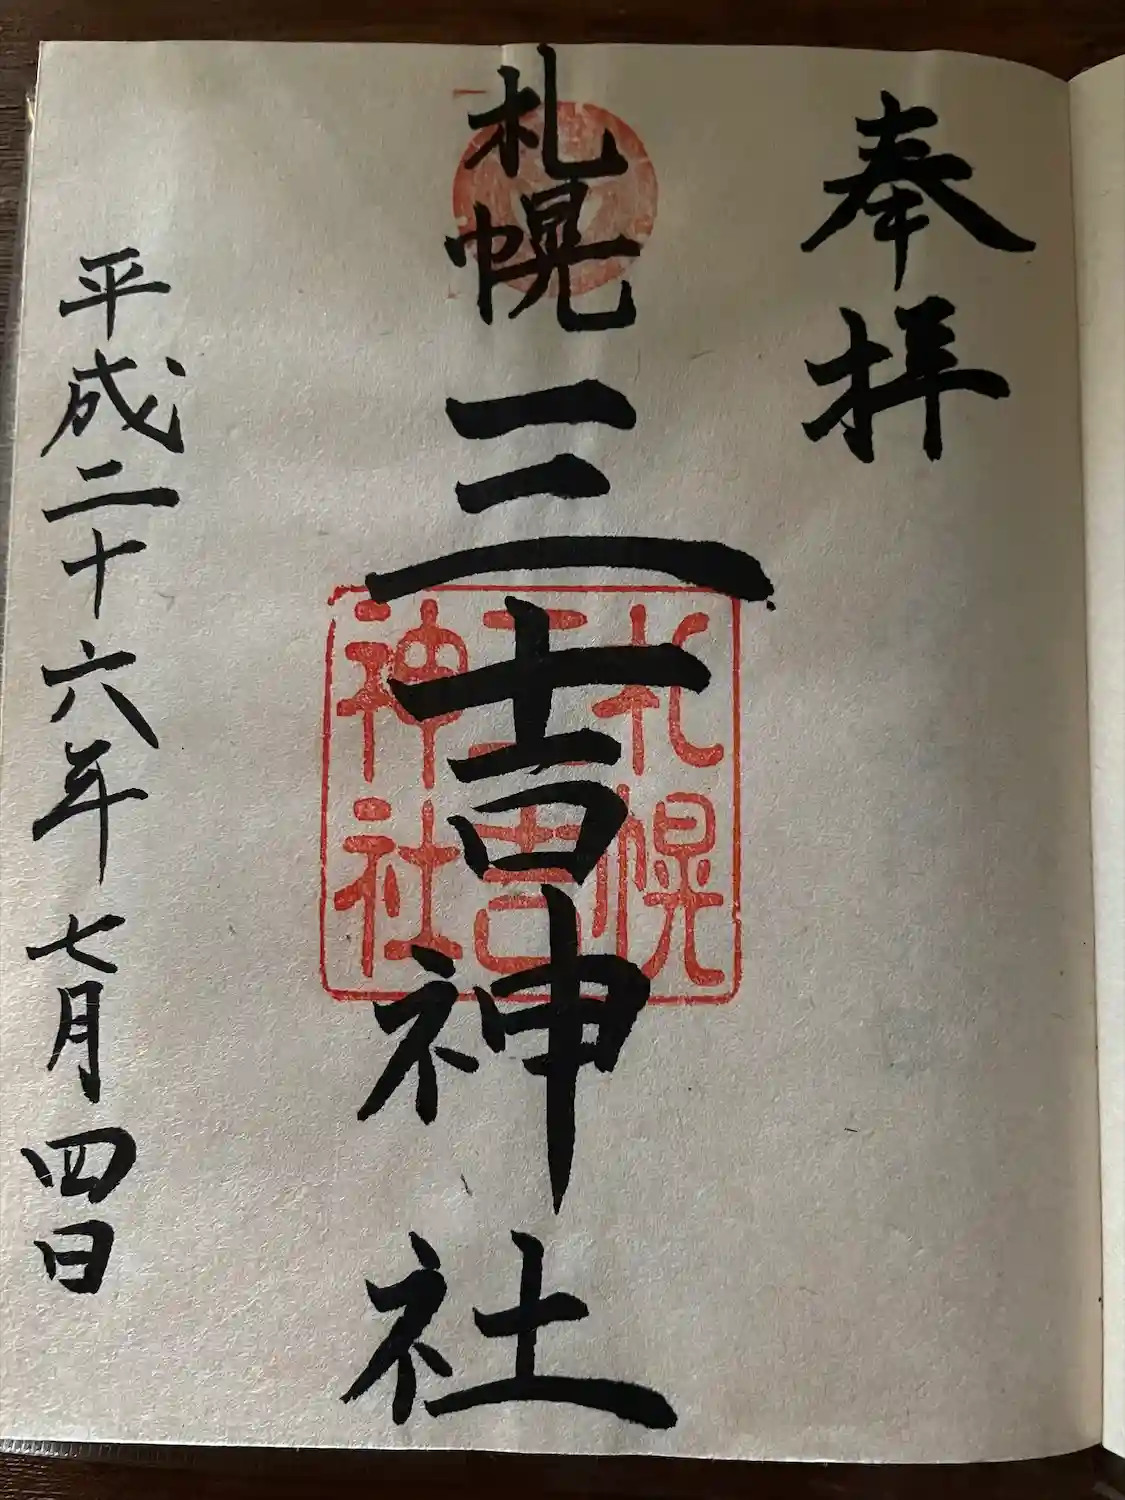 奉拝
札幌三吉神社
札幌
三吉
神社
平成二十六年七月四日